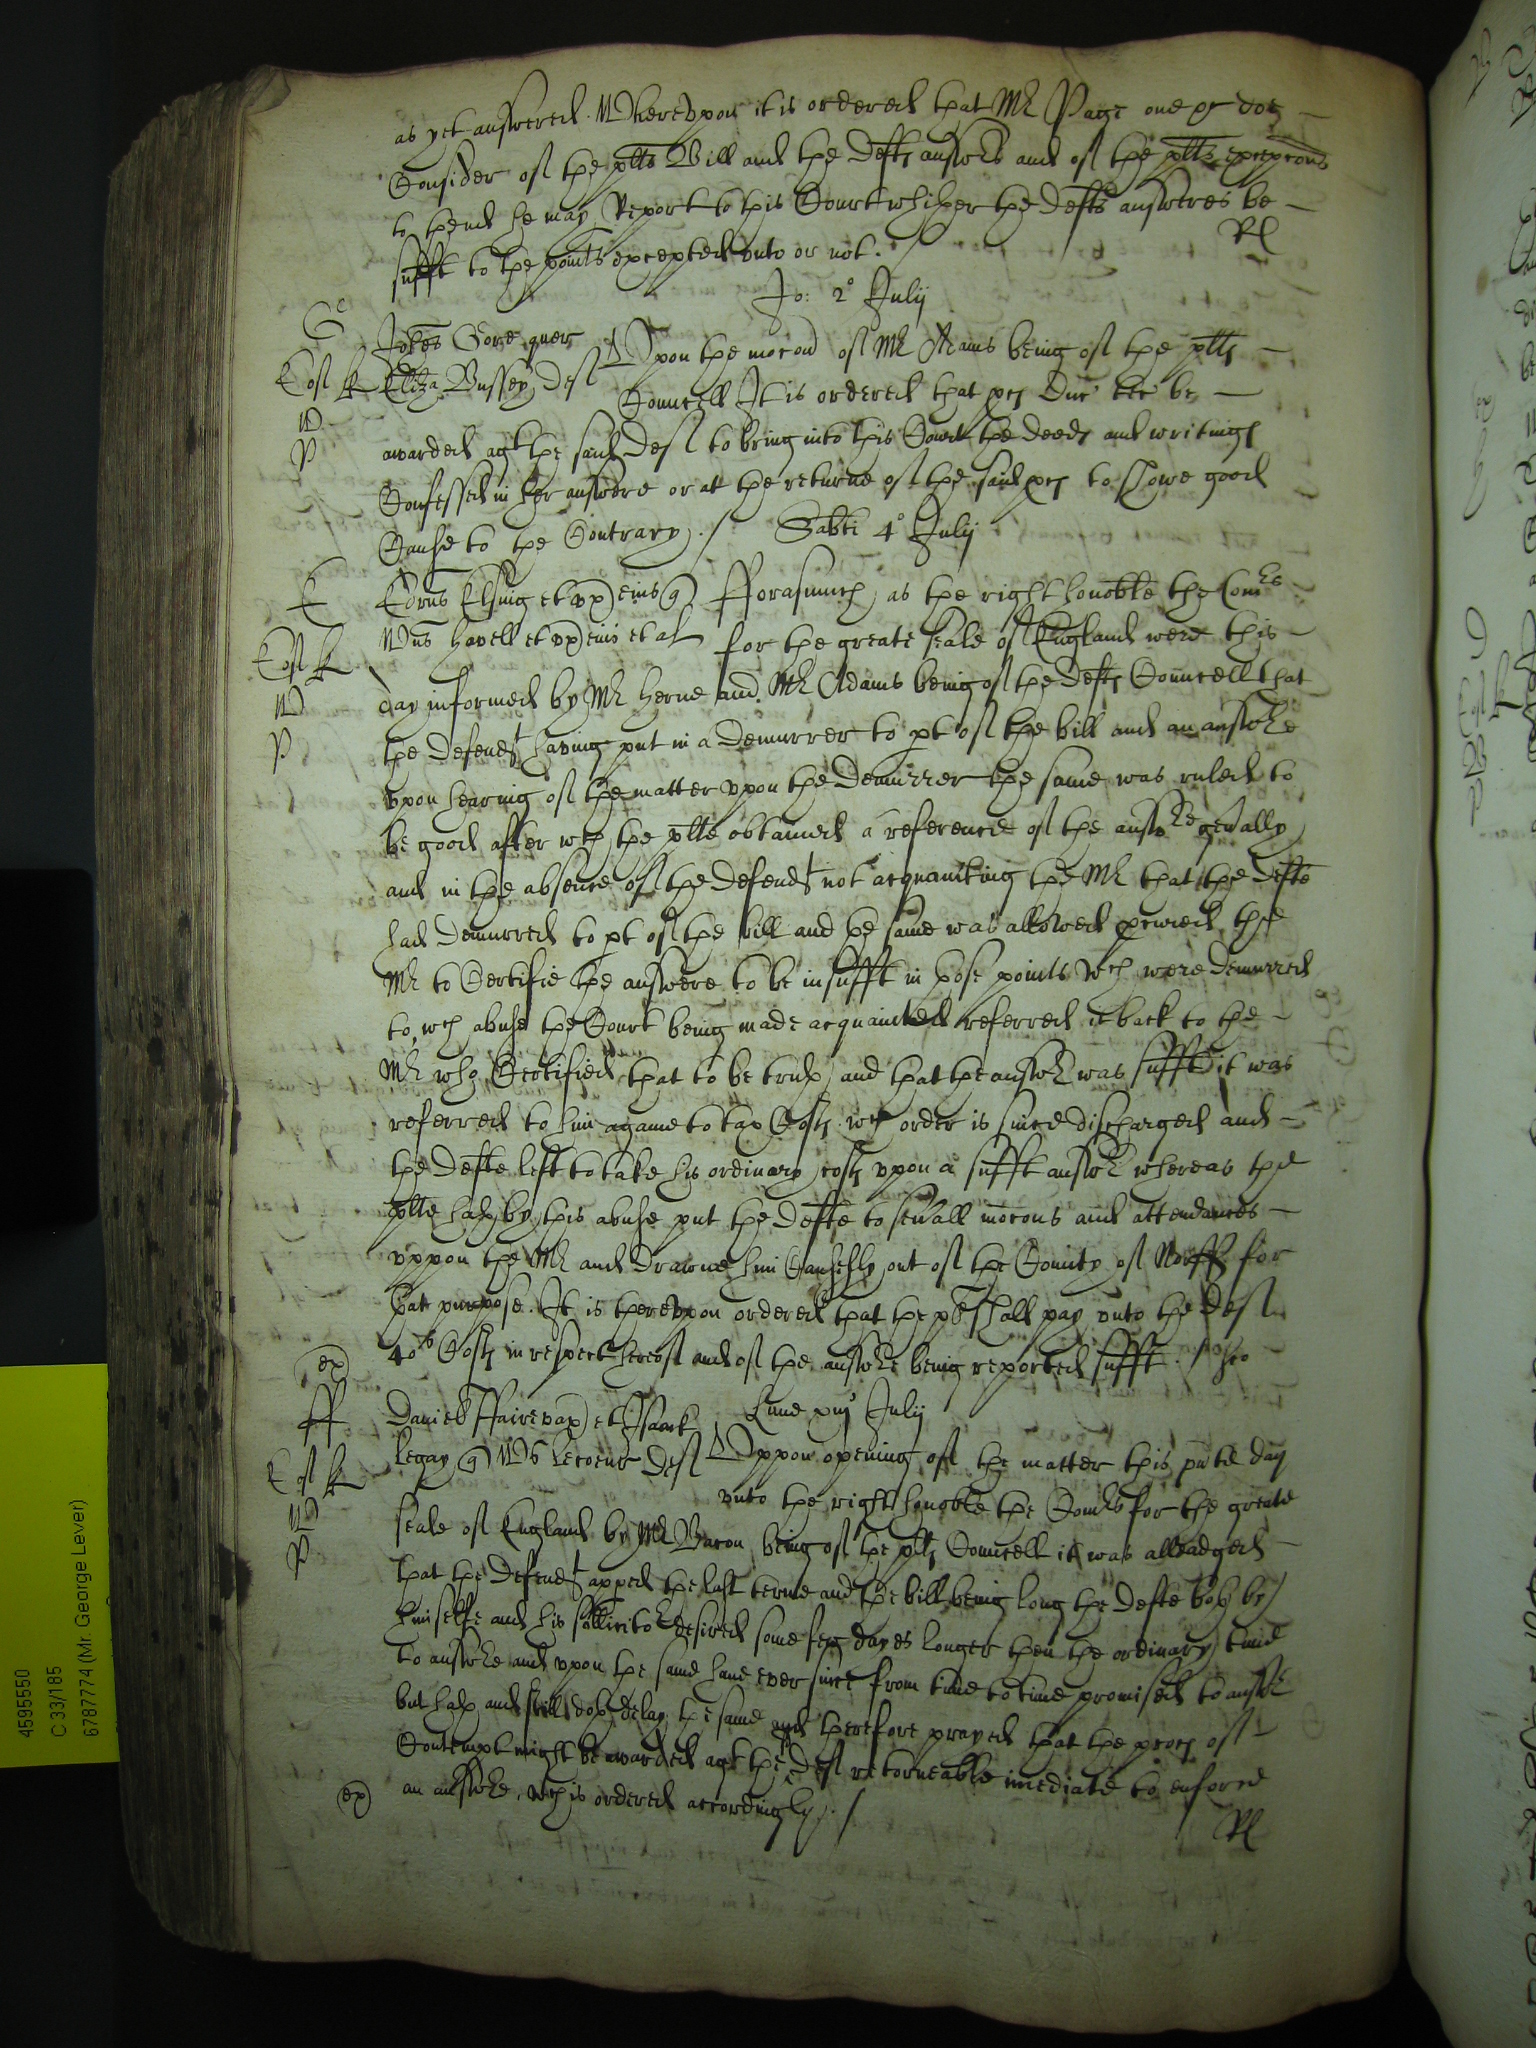 as yet answered. Whereupon it is ordered that Mr Page one &c doe
Consider of the plts Bill and the defts answers and of the plts excepcons
to thend he may Report to this Court whither the defts answeres be
sufft to the points excepted unto or not. /
Rl
Jo: 2° Julij
G
Johes Gore quer Upon the mocon of Mr Adams being of the plts
Eliza Bussey def Councell It is ordered that pces Duc' tec' be
W
P
awarded agt the said def to bring into this Court the deeds and writings
Confessed in her answere or at the returne of the said pces to showe good
Cause to the Contrary. / Sabti 4° Julij
E
Edrus Elsing et ux eius q fforasmuch as the right honoble the Comrs
Wus Havell et ux eius et al for the greate seale of England were this
W
P
day informed by Mr Herne and Mr Adams being of the defts Councell that
the defendt having put in a demurrer to pt of the bill and an answre
upon hearing of the matter upon the demurrer the same was ruled to
be good after wch the plte obtained a reference of the answre genally
and in the absence of the defendt not acquainting the Mr that the defte
had demurred to pt of the bill and the same was allowed pcured the
Mr to Certifie the answere to be insufft in those points wch were demurred
to, wch abuse the Court being made acquainted referred it back to the
Mr who Certified that to be truth and that the answr was sufft it was
referred to him againe to tax Costs wch order is since discharged and
the defte left to take his ordinary costs upon a sufft answr whereas the
plte hath by this abuse put the defte to sevall mocons and attendances
uppon the Mr and drawne him Causelesly out of the County of Norff for
that purpose. It is thereupon ordered that the plt shall pay unto the def
40s Costs in respect hereof and of the answre being reported sufft. /
ex
ff
Daniel ffairevax et Isaack Lune xiij Julij
Legay q Ws Lecoent def Uppon opening of the matter this pnte day
unto the right honoble the Comrs for the greate
W
P
seale of England by Mr Bacon being of the plts Councell it was alleadged
that the defendt apped the last terme and the bill being long the defte both by
himselfe and his sollicitor desired some few dayes longer then the ordinary time
to answre and upon the same have ever since from time to time promised to answre
but hath and still doth delay the same and therefore prayed that the pces of
Contempt might be awarded agt the def retorneable imediate to enforce
ex
an answre, wch is ordered accordingly. /
Rl
4595550
C 33/185
6787774 (Mr. George Lever)